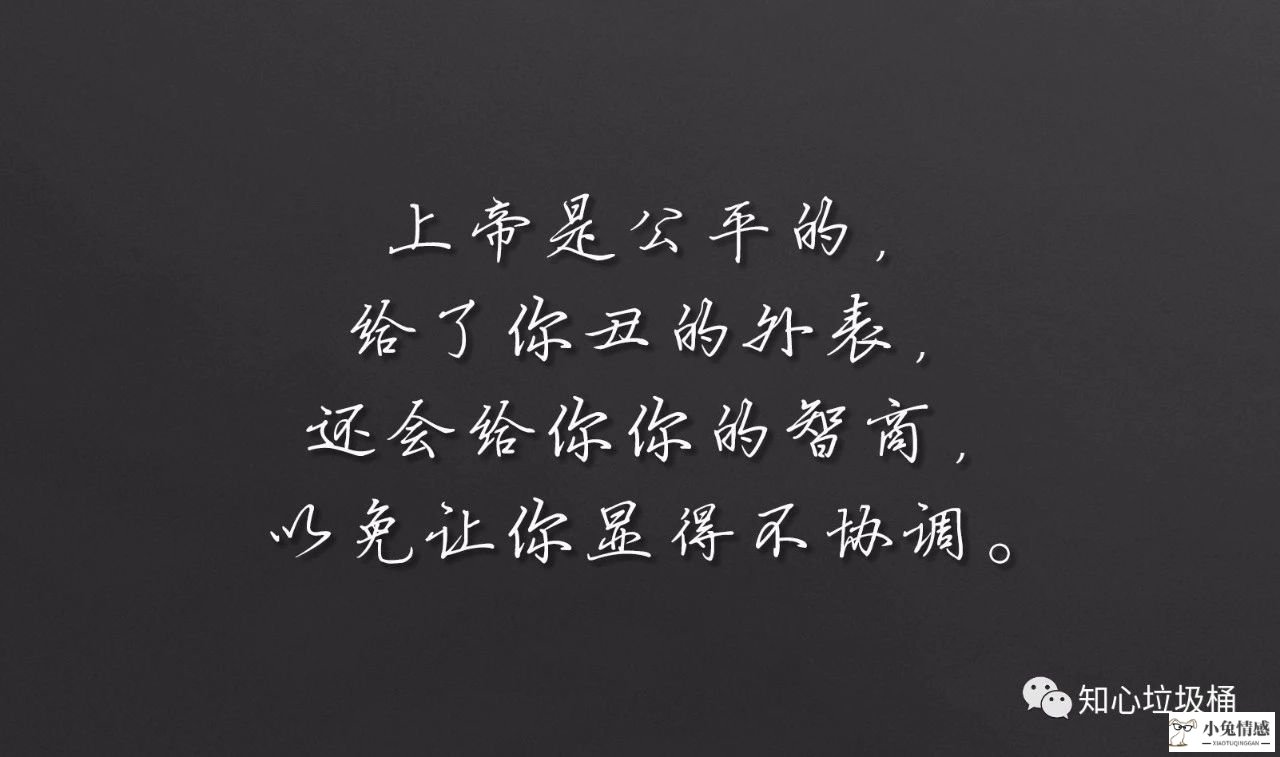 上帝是公平的，
给了你丑的外表，
还会给你你的智商，
以免让你显得不协调。
知心垃圾桶
小兔情感
XIAOTUQINGGAN